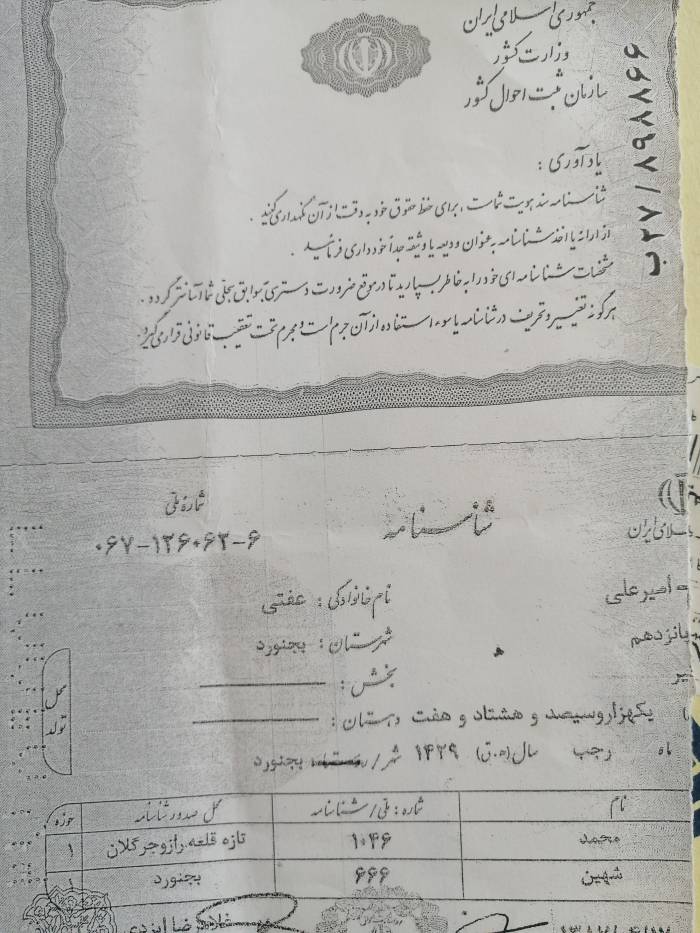 جمهوری اسلامی ایران
وزارت کشور
سازمان ثبت احوال کشور
ب ۲۷/۸۹۸۸۶۶
یادآوری :
شناسنامه سند هویت شماست ، برای حفظ حقوق خود به دقت از آن نگهداری کنید .
از ارائه یا اخذ شناسنامه به عنوان ودیعه یا وثیقه جداً خودداری فرمائید .
مشخصات شناسنامه ای خود را به خاطر بسپارید تا در موقع ضرورت دسترسی به سوابق سجلی شما آسانتر گردد .
هرگونه تغییر و تحریف در شناسنامه یا سوء استفاده از آن جرم است و مجرم تحت تعقیب قانونی قرار می گیرد .
شماره ملی
شناسنامه
۰۶۷-۱۲۶۰۶۲-۶
اسلامی ایران
امیرعلی نام خانوادگی : عفتی
پانزدهم شهرستان : بجنورد
تیر بخش :
یکهزار و سیصد و هشتاد و هفت دهستان :
ماه رجب سال (ه.ق) ۱۴۲۹ شهر / بجنورد
محل تولد
نام شماره : ملی / شناسنامه محل صدور شناسنامه حوزه
محمد ۱۰۴۶ تازه قلعه.رازوجرگلان ۱
شهین ۶۶۶ بجنورد ۱
غلامرضا ایزدی